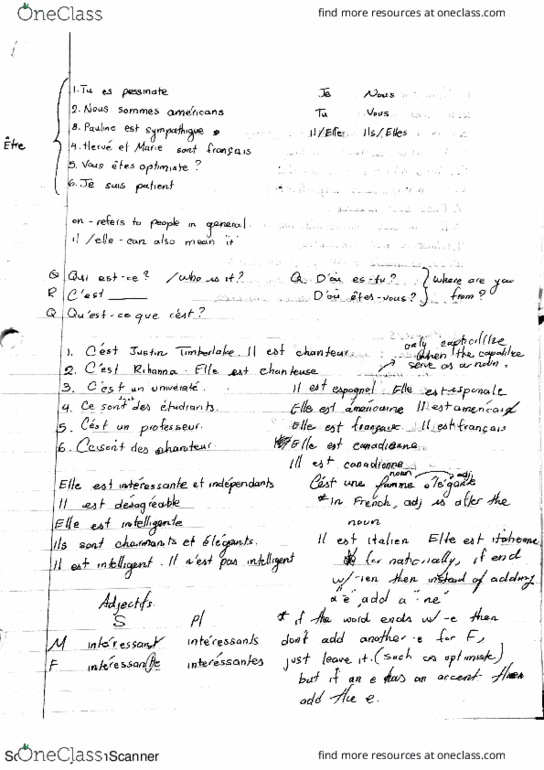 OneClass
find more resources at oneclass.com
1. Tu es pessmate Je Nous
2. Nous sommes américans Tu Vous
3. Pauline est sympathique Il/Elle Ils/Elles
Être
4. Hervé et Marie sont français
5. Vous êtes optimiste ?
6. Je suis patient
on - refers to people in general
il /elle - can also mean it
Q Qui est-ce? /Who is it? Q. D'où es-tu? } where are you
R C'est ____ D'où êtes-vous? } from?
Q Qu'est-ce que c'est?
1. C'est Justin Timberlake. Il est chanteur
only
when the
serve as a noun.
2. C'est Rihanna. Elle est chanteuse
3. C'est un Il est espagnol. Elle est
4. Ce sont des étudiants. Elle est américaine Il est américain
5. C'est un professeur. Elle est Il est français
6. Ce sont des Elle est canadienne
Il est
noun adj
Elle est intéressante et indépendants C'est une femme élégante
Il est désagréable * In French, adj is after the
noun
Elle est intelligente
Ils sont charmants et élégants. Il est italien Elle est italienne
Il est intelligent. Il n'est pas intelligent for nationally, if end
w/-ien then instead of adding
"e", add a "ne"
Adjectifs
S Pl * if the word ends w/-e then
M intéressant intéressants don't add another -e for F,
F intéressante intéressantes just leave it. (such as optimiste)
but if an e has an accent then
add the e.
OneClass
Scanner
find more resources at oneclass.com